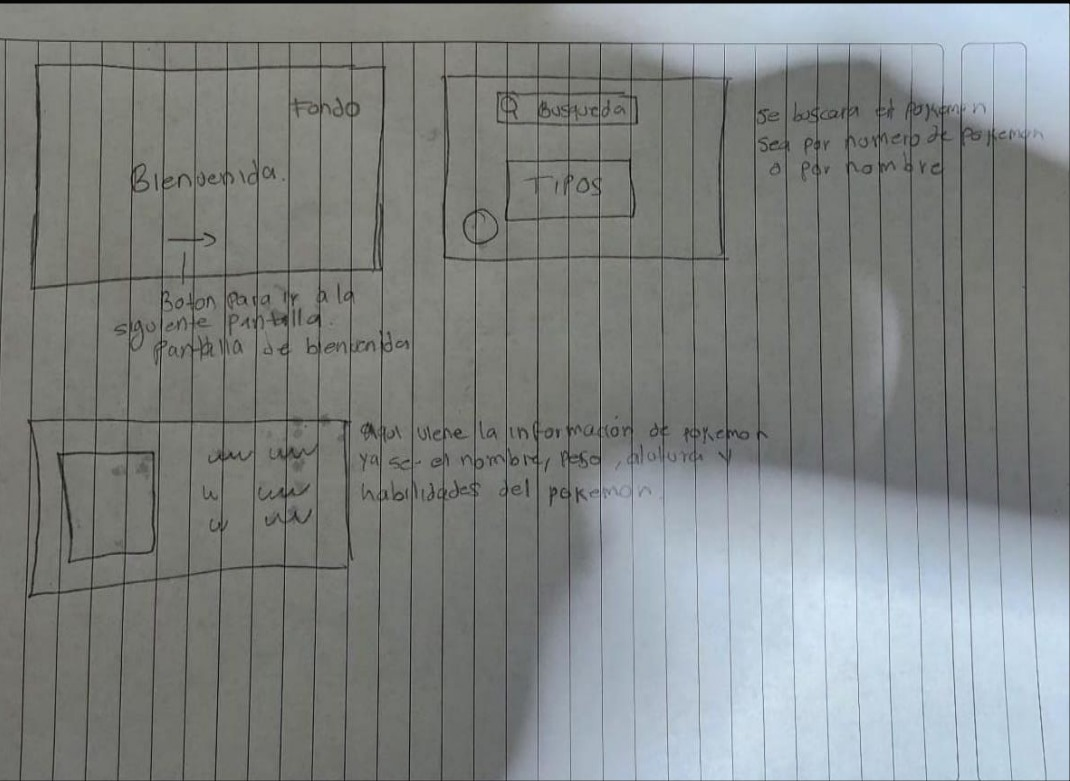 Fondo
Bienvenida.
Boton para ir a la
siguiente pantalla.
Pantalla de bienvenida
Busqueda
TIPOS
Se buscara el pokemon
sea por numero de pokemon
o por nombre
Aqui viene la informacion de pokemon
ya se- el nombre, peso, alatura y
habilidades del pokemon.